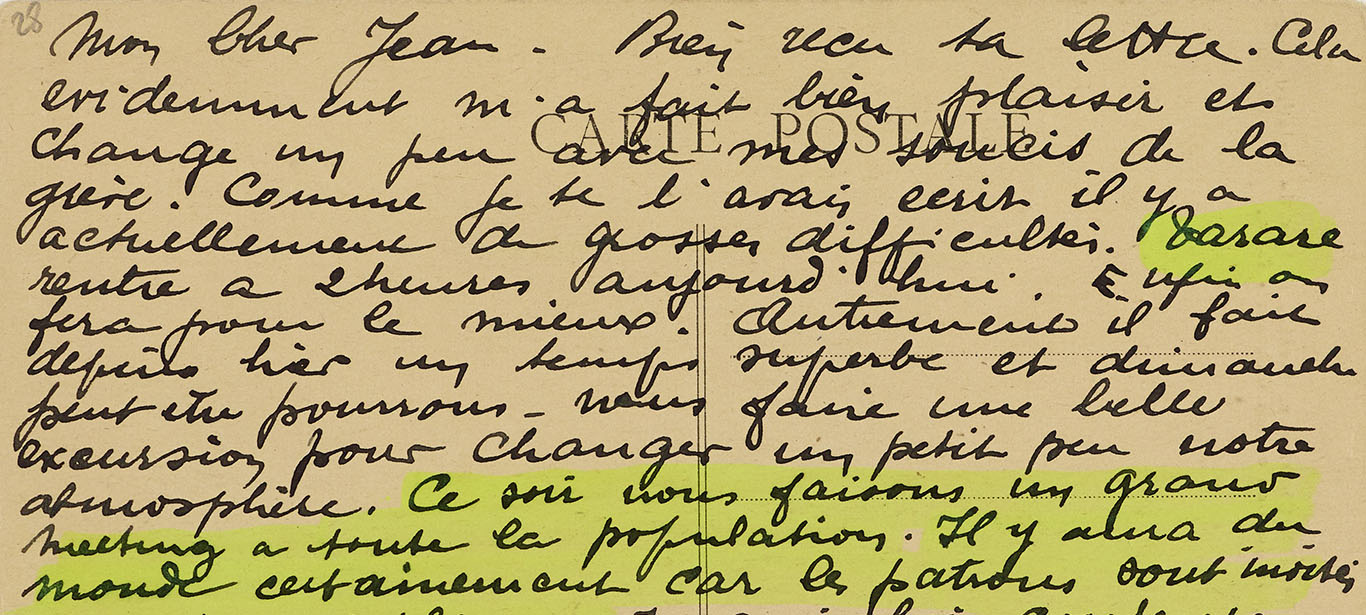 28
Mon Cher Jean - Bien recu ta lettre. Cela
evidemment m'a fait bien plaisir et
CARTE POSTALE
change un peu avec mes soucis de la
grève. Comme je te l'avais ecrit il y a
actuellement de grosses difficultés. Tarare
rentre a 2 heures aujourd'hui. Enfin on
fera pour le mieux. Autrement il fait
depuis hier un temps superbe et dimanche
peut etre pourrons-nous faire une belle
excursion pour changer un petit peu notre
atmosphère. Ce soir nous faisons un grand
meeting a toute la population. Il y aura du
monde certainement car les patrons sont invités